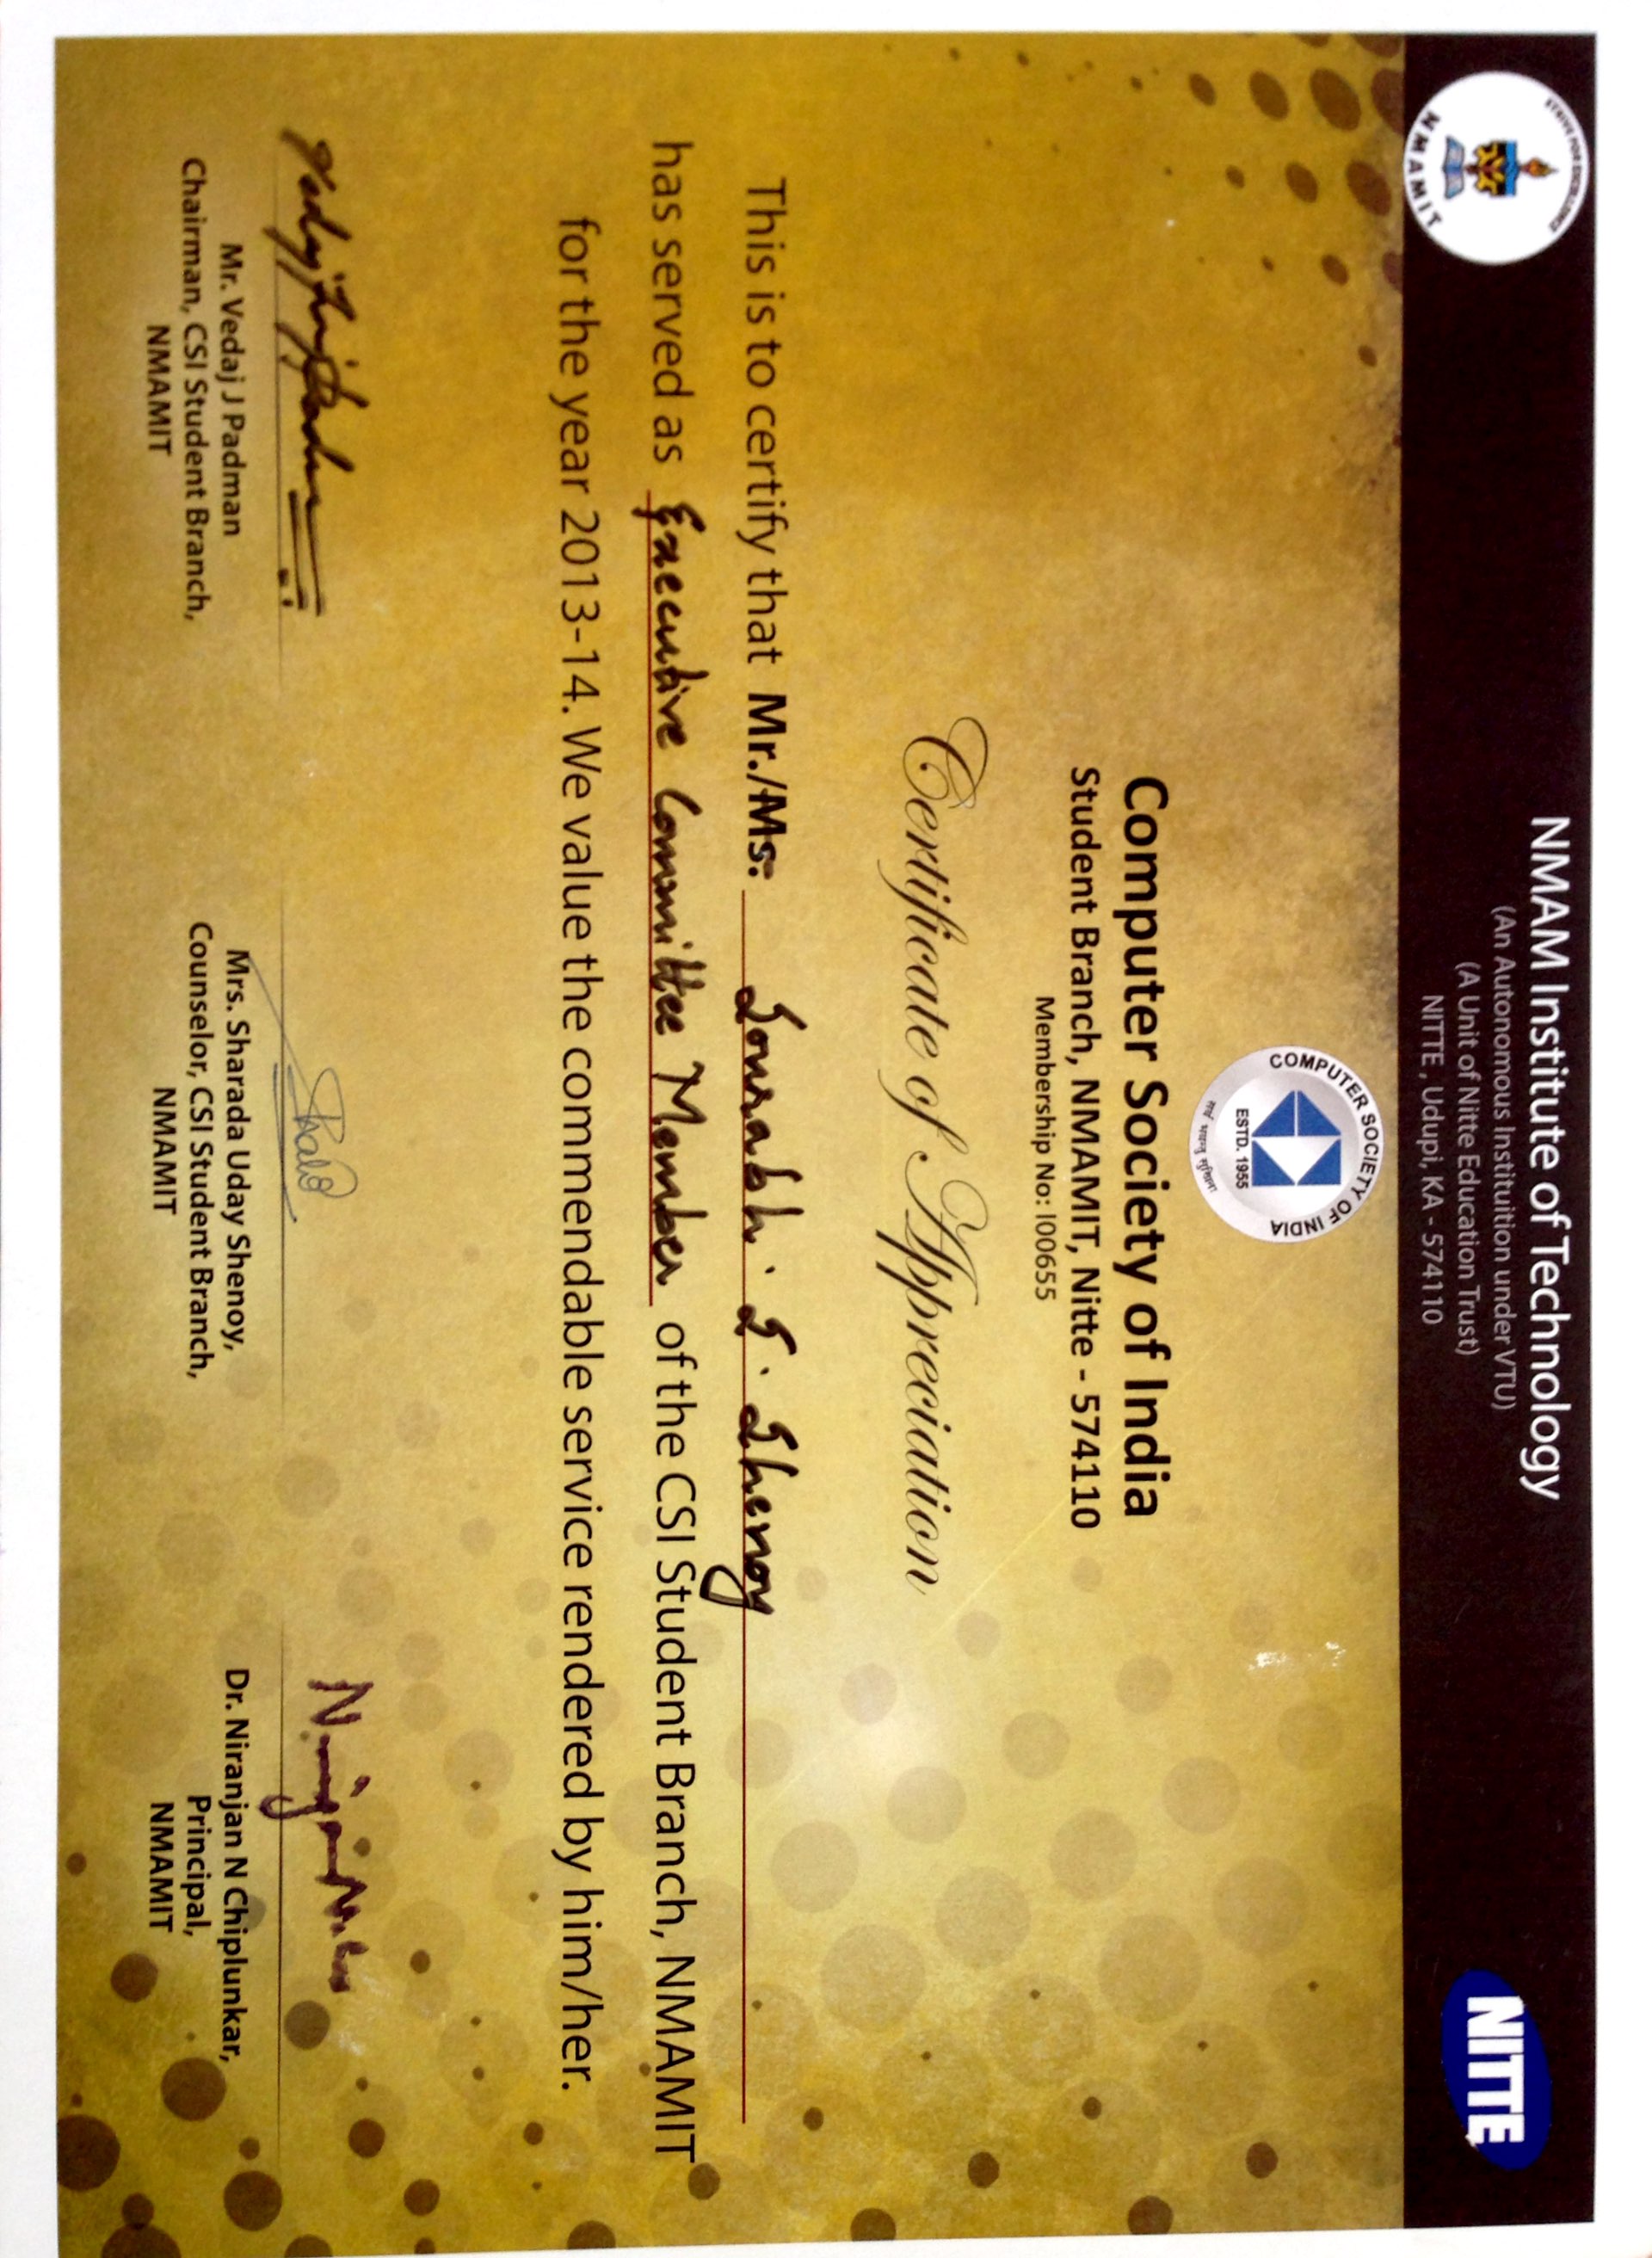 STRIVE FOR EXCELLENCE
NMAMIT
NMAM Institute of Technology
(An Autonomous Instituition under VTU)
(A Unit of Nitte Education Trust)
NITTE , Udupi, KA - 574110
NITTE
COMPUTER SOCIETY OF INDIA
ESTD. 1955
सर्वे भवन्तु सुखिनः
Computer Society of India
Student Branch, NMAMIT, Nitte - 574110
Membership No: I00655
Certificate of Appreciation
This is to certify that Mr./Ms. Sourabh . S . Shenoy
has served as Executive Committee Member of the CSI Student Branch, NMAMIT
for the year 2013-14. We value the commendable service rendered by him/her.
Mr. Vedaj J Padman
Chairman, CSI Student Branch,
NMAMIT
Mrs. Sharada Uday Shenoy,
Counselor, CSI Student Branch,
NMAMIT
Dr. Niranjan N Chiplunkar,
Principal,
NMAMIT